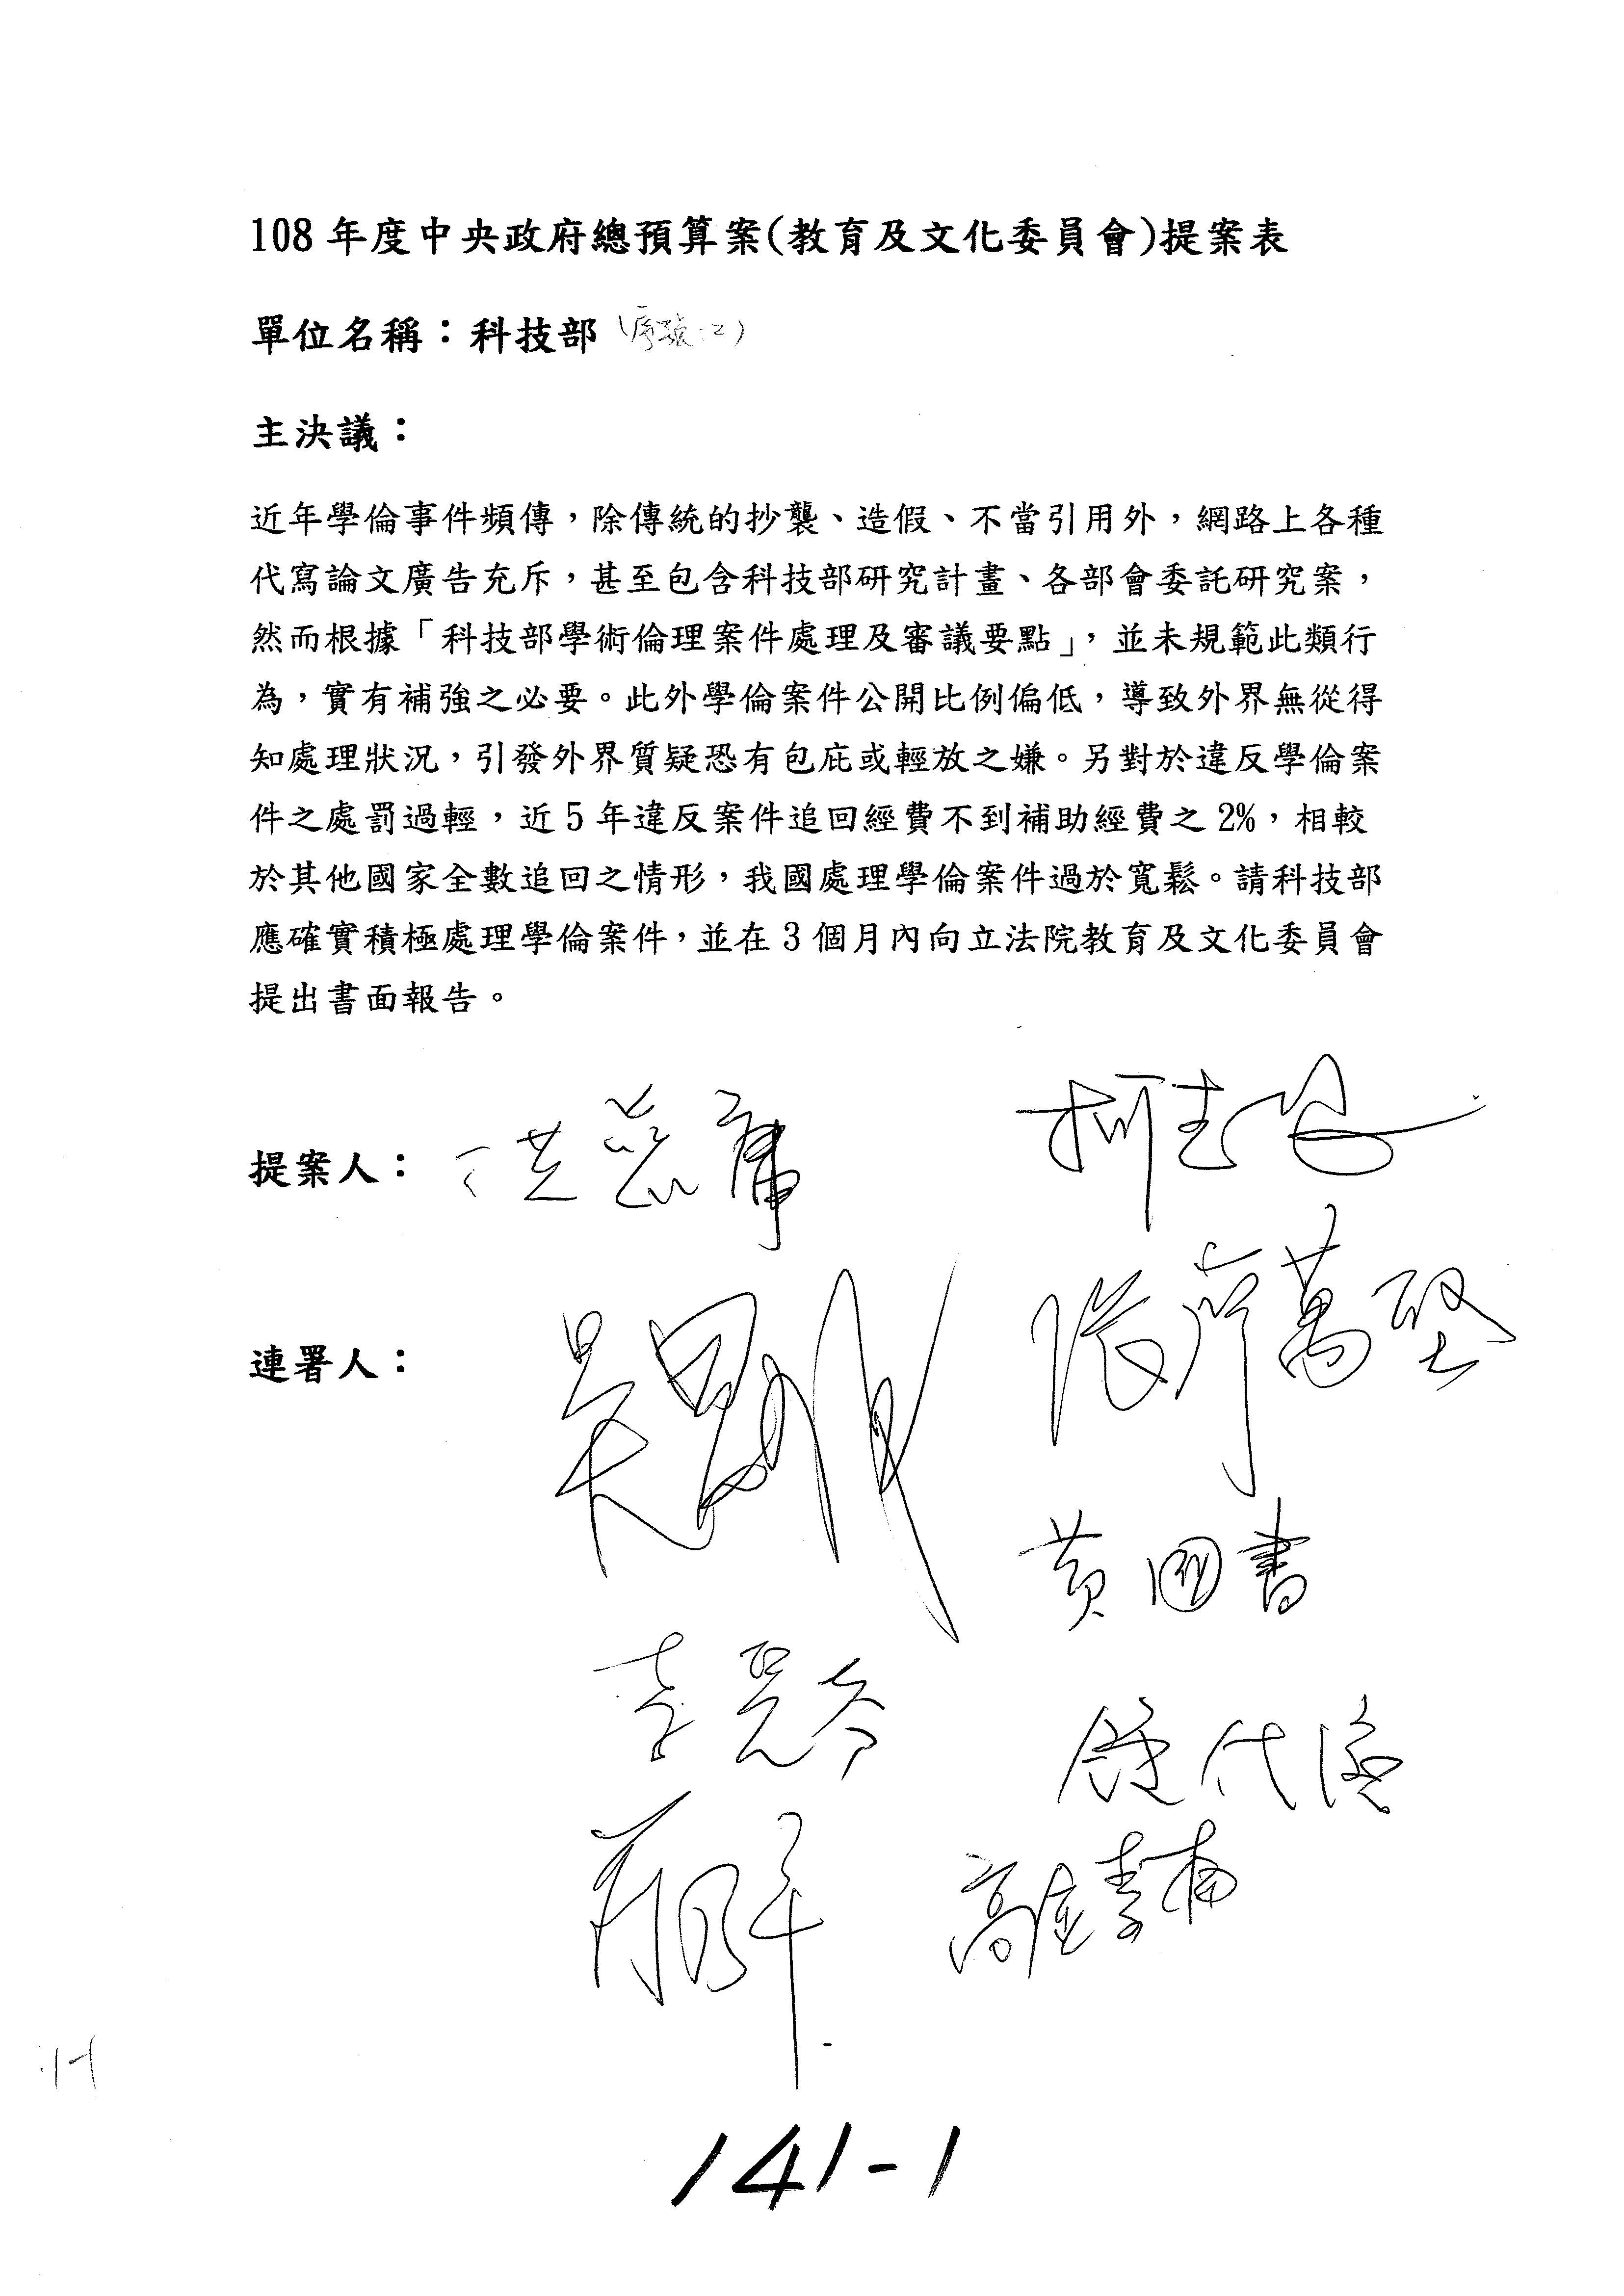 108 年度中央政府總預算案(教育及文化委員會)提案表
單位名稱：科技部 (序號:2)
主決議：
近年學倫事件頻傳，除傳統的抄襲、造假、不當引用外，網路上各種
代寫論文廣告充斥，甚至包含科技部研究計畫、各部會委託研究案，
然而根據「科技部學術倫理案件處理及審議要點」，並未規範此類行
為，實有補強之必要。此外學倫案件公開比例偏低，導致外界無從得
知處理狀況，引發外界質疑恐有包庇或輕放之嫌。另對於違反學倫案
件之處罰過輕，近 5 年違反案件追回經費不到補助經費之 2%，相較
於其他國家全數追回之情形，我國處理學倫案件過於寬鬆。請科技部
應確實積極處理學倫案件，並在 3 個月內向立法院教育及文化委員會
提出書面報告。
提案人： 洪慈庸 柯志恩
連署人：
張廖萬堅
黃國書
李麗芬
鍾佳濱
高金素梅
141-1